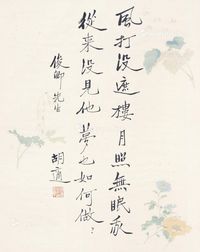 風打没遮樓月照無眠我
從来没見他夢也如何做？
俊卿先生
胡適